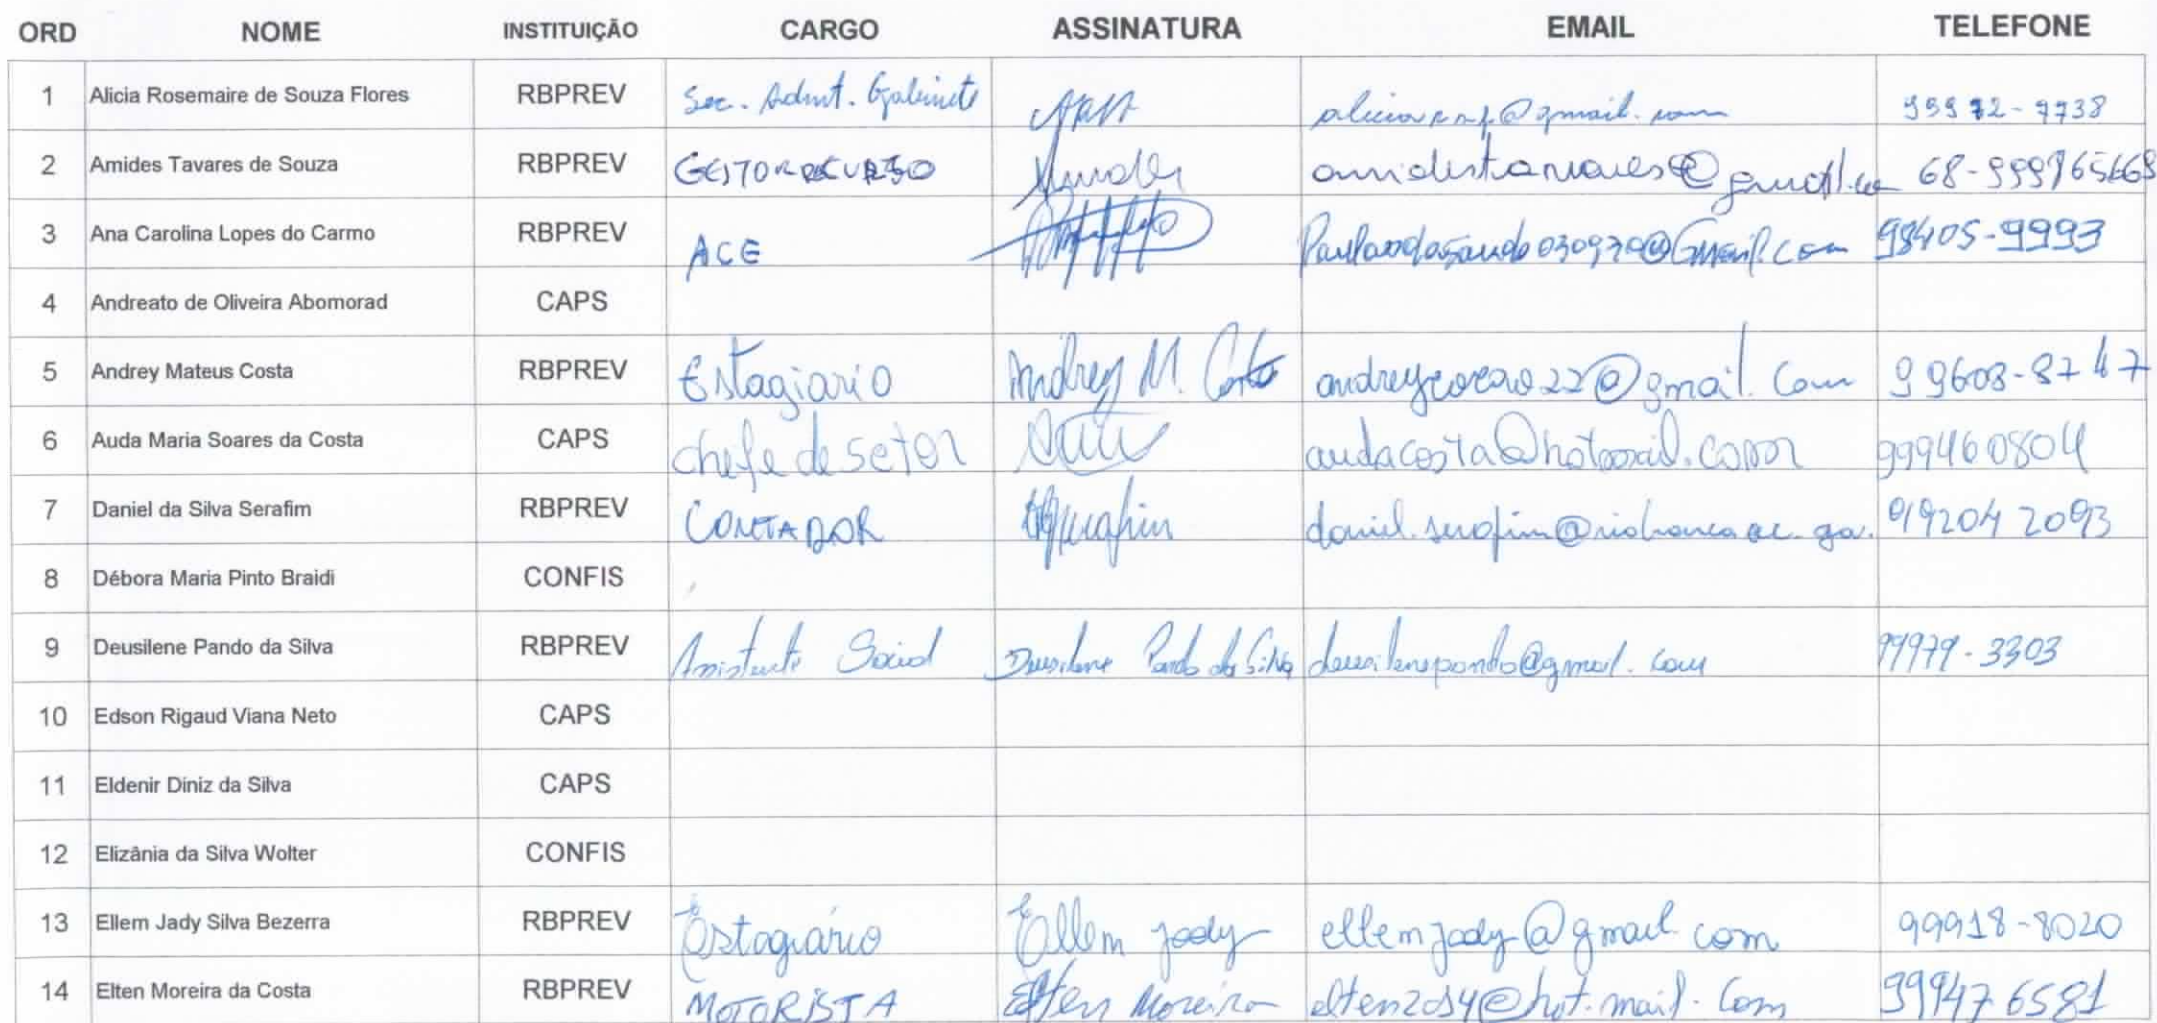 ORD NOME INSTITUIÇÃO CARGO ASSINATURA EMAIL TELEFONE
1 Alicia Rosemaire de Souza Flores RBPREV Sec. Admt. Gabinete
2 Amides Tavares de Souza RBPREV GESTOR RECURSO
3 Ana Carolina Lopes do Carmo RBPREV ACE 98405-9993
4 Andreato de Oliveira Abomorad CAPS
5 Andrey Mateus Costa RBPREV Estagiario Andrey M. Costa 99608-8747
6 Auda Maria Soares da Costa CAPS chefe de setor audacosta@hotmail.com 999460804
7 Daniel da Silva Serafim RBPREV CONTADOR
8 Débora Maria Pinto Braidi CONFIS
9 Deusilene Pando da Silva RBPREV Assistente Social Deusilene Pando da Silva deusilenepando@gmail.com 99979-3303
10 Edson Rigaud Viana Neto CAPS
11 Eldenir Diniz da Silva CAPS
12 Elizânia da Silva Wolter CONFIS
13 Ellem Jady Silva Bezerra RBPREV Estagiário Ellem Jady ellemjady@gmail.com 99918-8020
14 Elten Moreira da Costa RBPREV MOTORISTA Elten Moreira elten2014@hot.mail.com 99947 6581